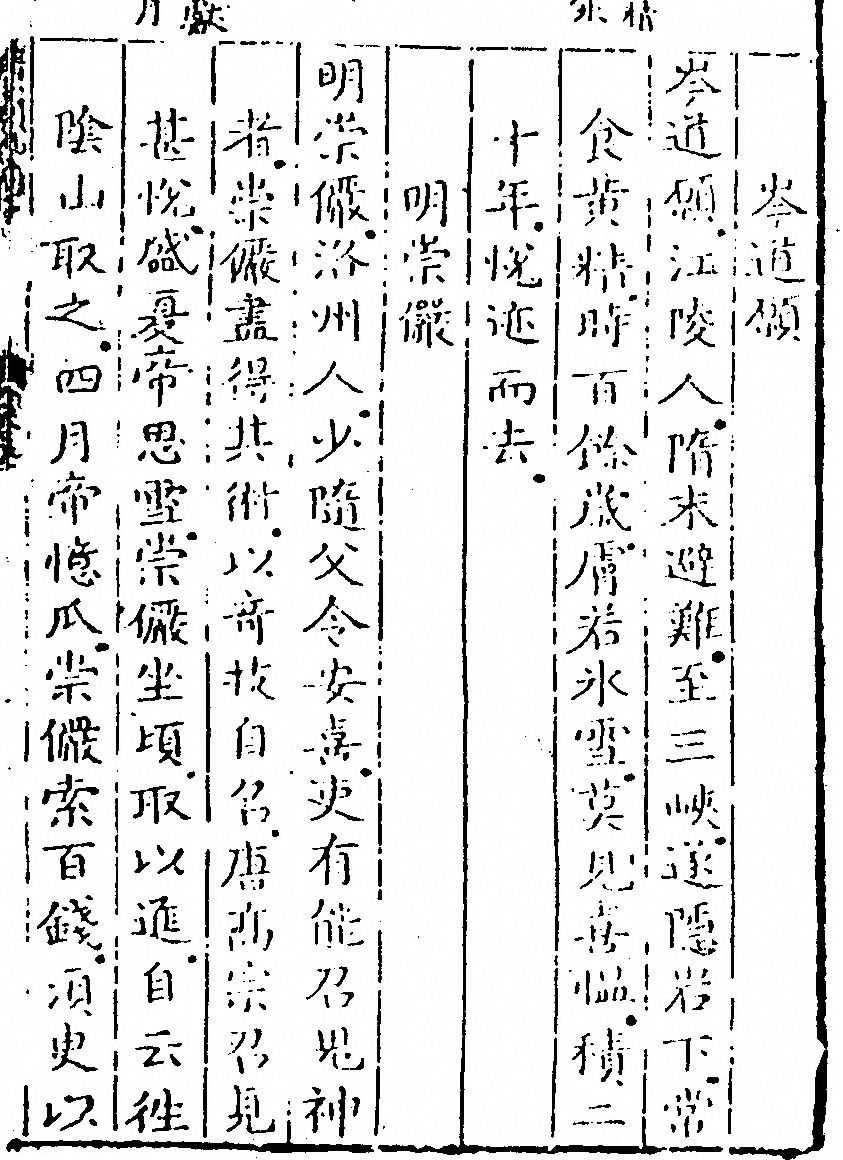 岑道願
岑道願江陵人隋末避難至三峽遂隱岩下常
食黄精時百餘歲膚若氷雪莫見喜慍積二
十年悅迹而去
明崇儼
明崇儼洛州人少隨父令安喜吏有能召鬼神
者崇儼盡得其術以奇技自名唐高宗召見
甚悅盛夏帝思雪崇儼坐頃取以進自云徃
陰山取之四月帝憶瓜崇儼索百錢須臾以